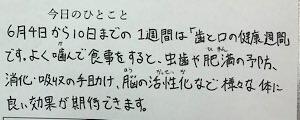 今日のひとこと
6月4日から10日までの1週間は「歯と口の健康週間」
です。よく噛んで食事をすると、虫歯や肥満の予防、
消化・吸収の手助け、脳の活性化など様々な体に
良い効果が期待できます。